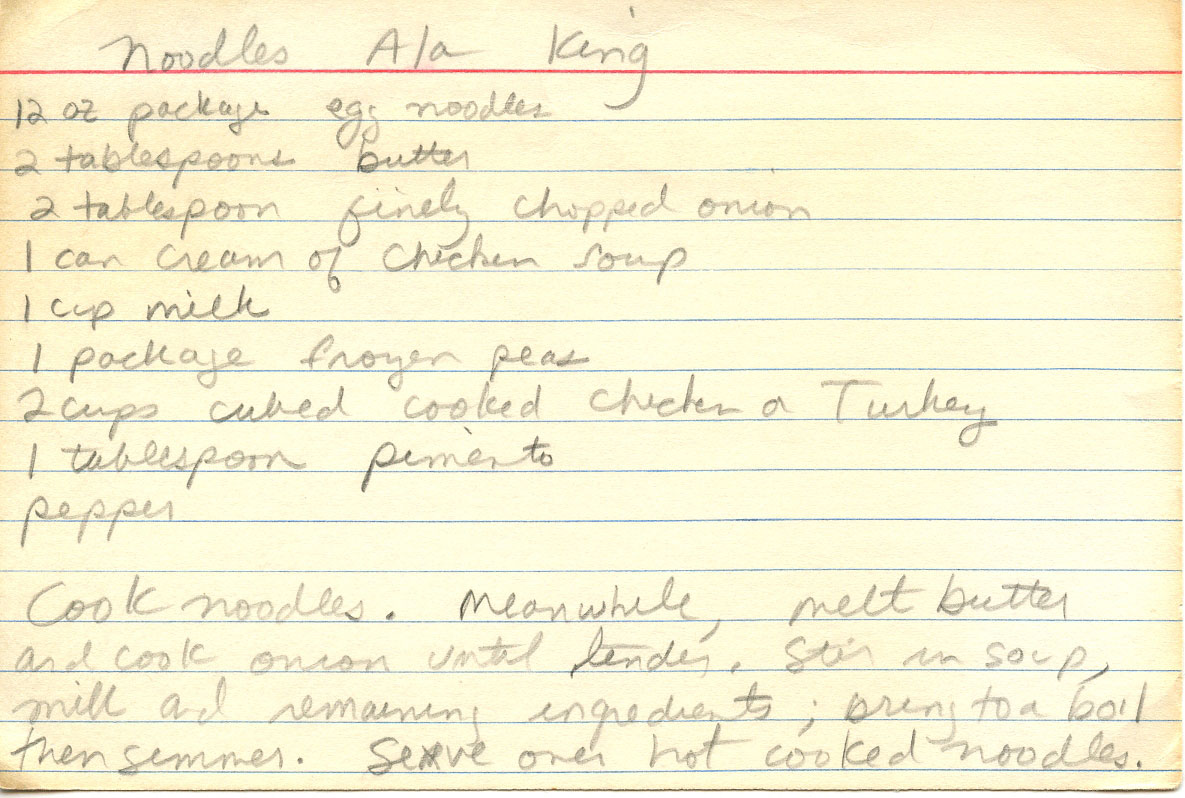 Noodles Ala King
12 oz package egg noodles
2 tablespoons butter
2 tablespoon finely chopped onion
1 can cream of chicken soup
1 cup milk
1 package frozen peas
2 cups cubed cooked chicken or Turkey
1 tablespoon pimento
pepper
Cook noodles. Meanwhile, melt butter
and cook onion until tender. Stir in soup,
milk and remaining ingredients; bring to a boil
then simmer. Serve over hot cooked noodles.